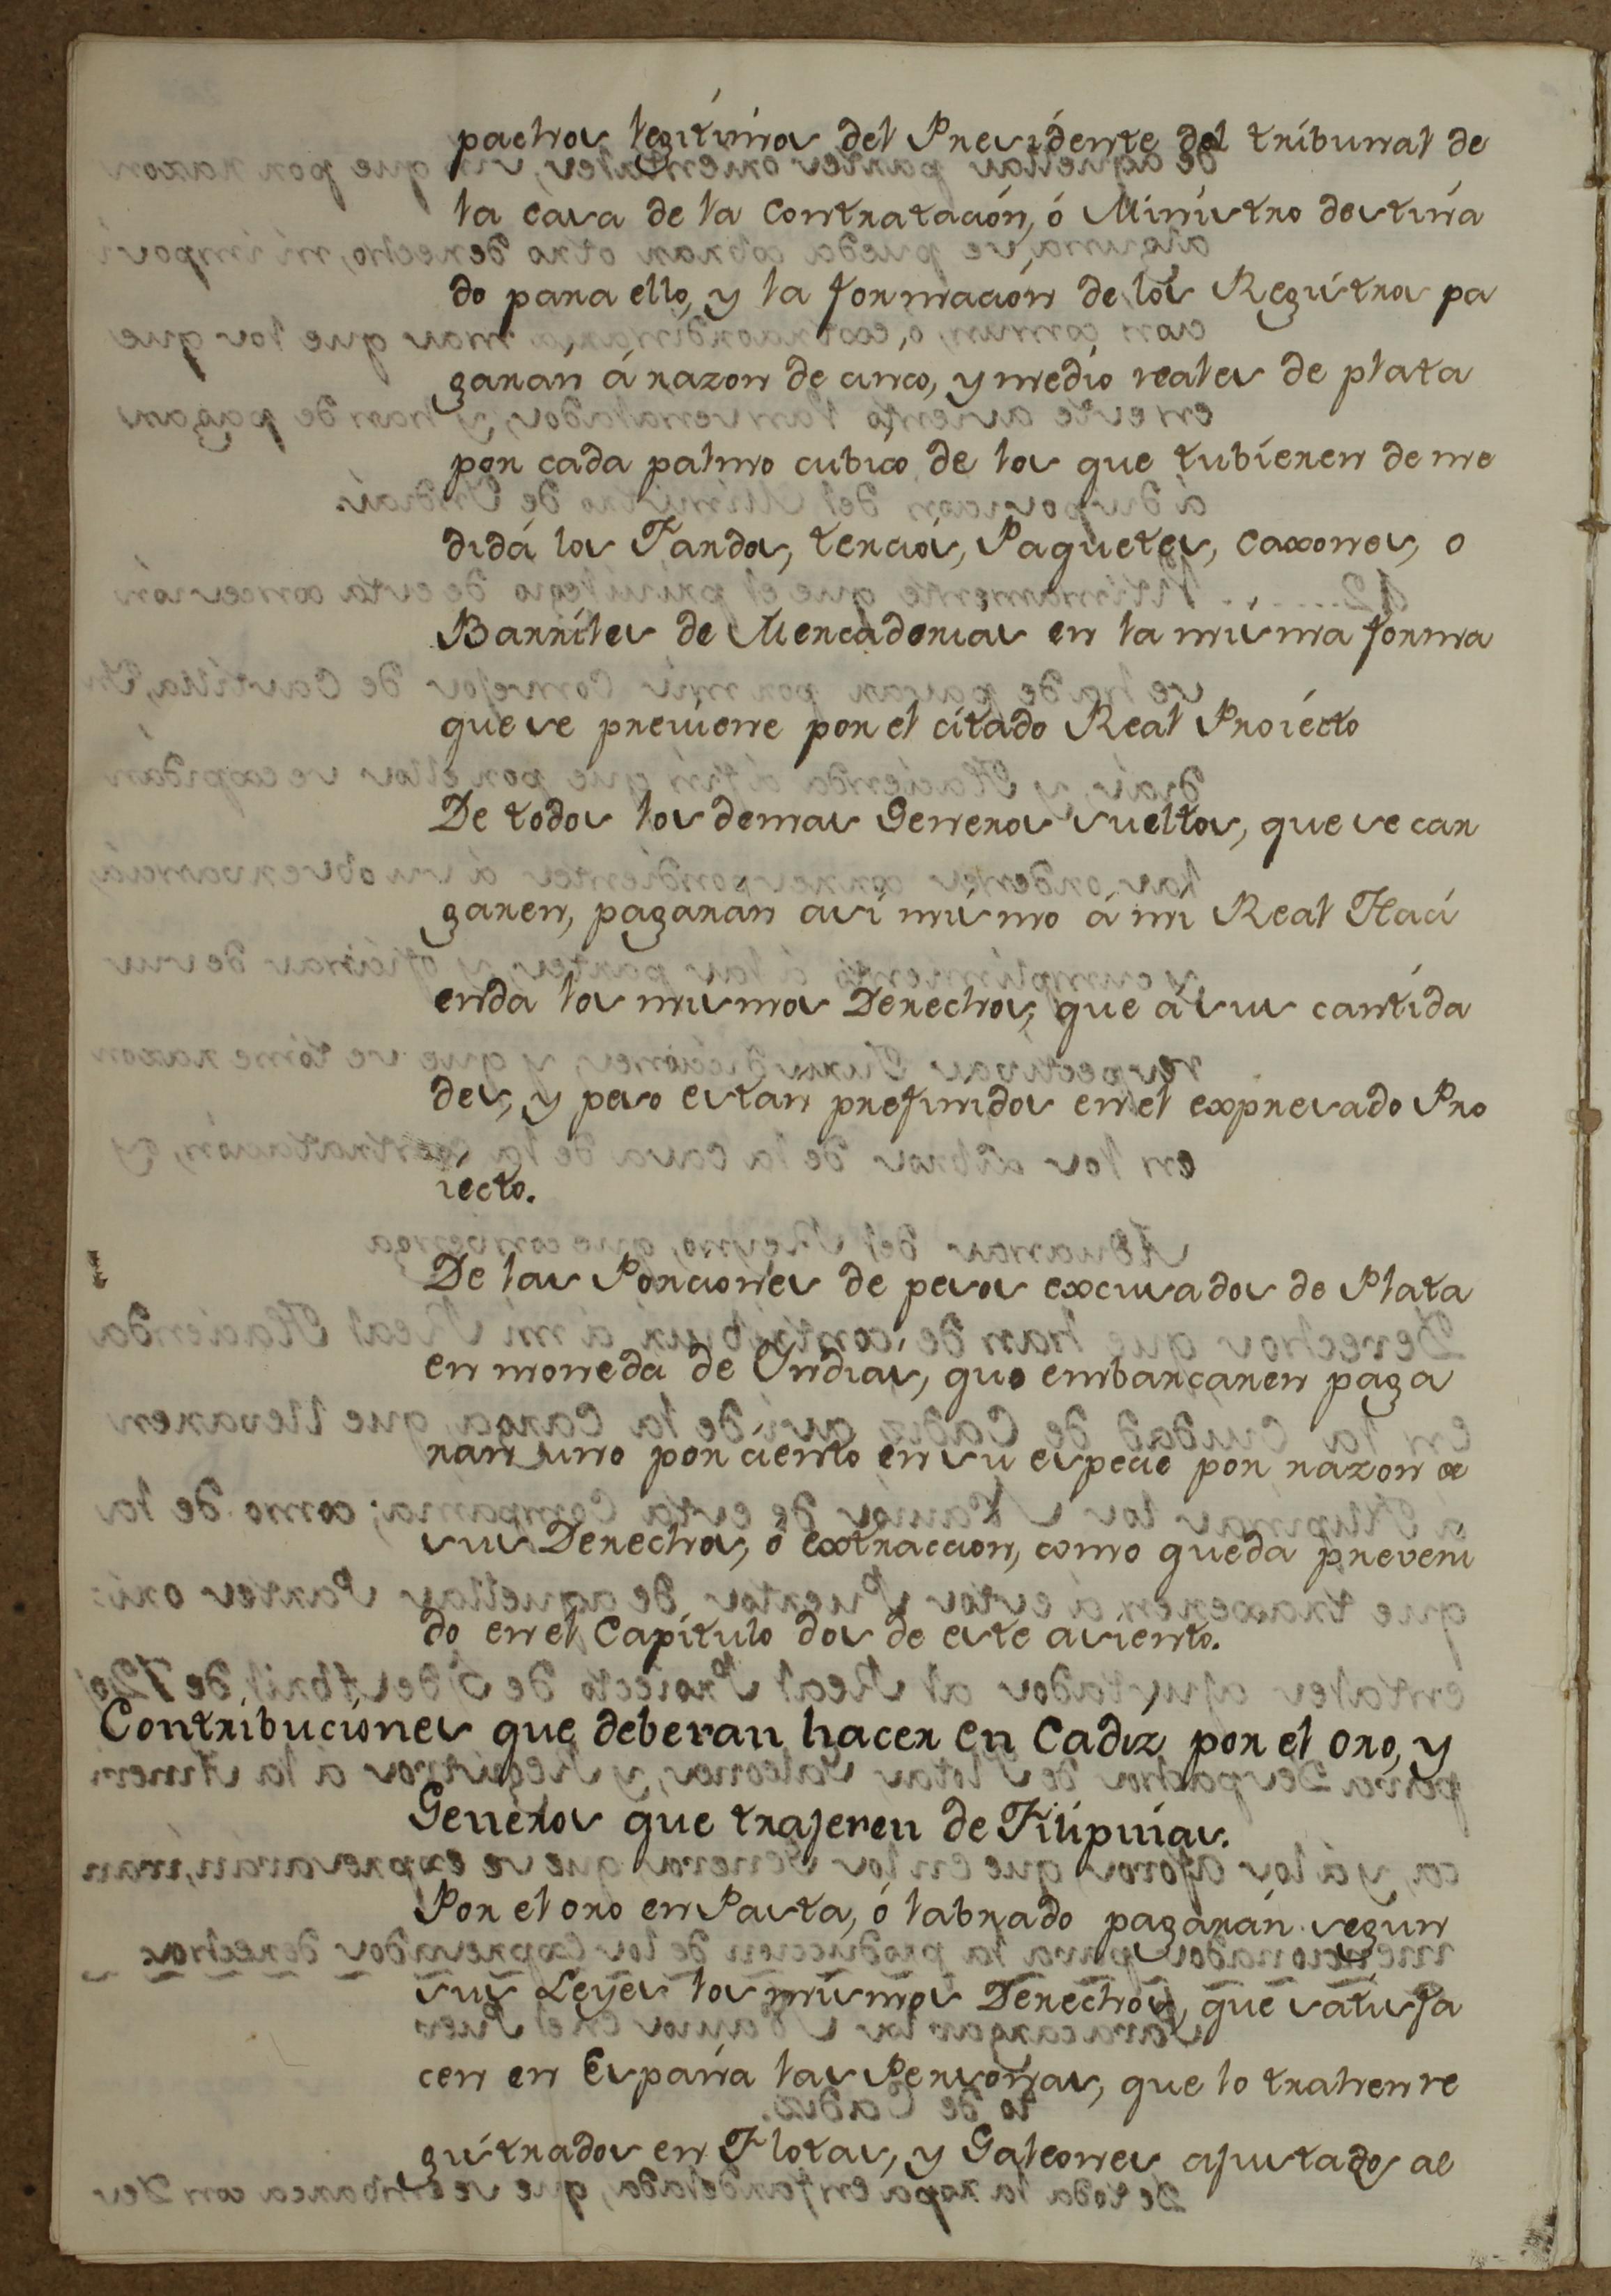 pachos legitimos del Presidente del tribunal de
la casa de la Contratación, ó Ministro destina
do para ello, y la formación de los Registros pa
garán á razon de cinco, y medio reales de plata
por cada palmo cubico de los que tubieren de me
dida los Fardos, tercios, Paquetes, caxones, o
Barriles de Mercaderias en la misma forma
que se previene por el citado Real Proiécto
De todos los demas Generos sueltos, que se car
garen, pagarán asi mismo á mi Real Haci
enda los mismos Derechos, que á sus cantida
des, y peso estan prefinidos en el expresado Pro
iecto.
De las Porciones de pesos excusados de Plata
en moneda de Yndias, que embarcaren paga
ran uno por ciento en su especie por razon de
sus Derechos, ó extraccion, como queda preveni
do en el Capítulo dos de este asiento.
Contribuciones que deberan hacer en Cadiz por el oro, y
Generos que trajeren de Filipinas.
Por el oro en Pasta, ó labrado pagarán segun
sus Leyes los mismos Derechos, que satisfa
cen en España las Personas, que lo trahen re
gistrados en Flotas, y Galeones ajustados al